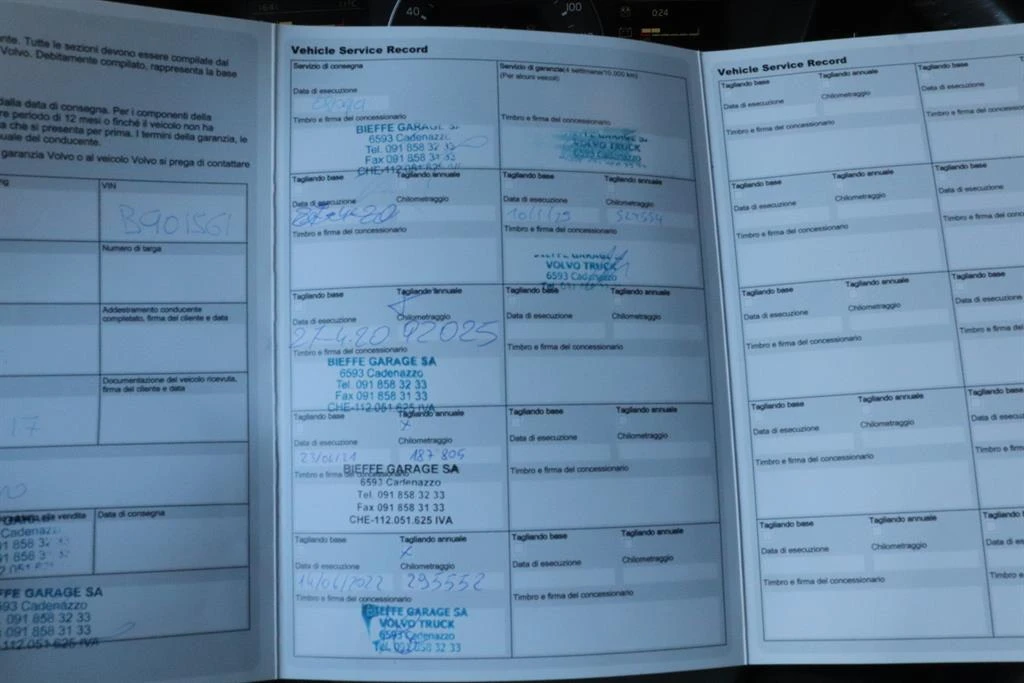 40
100
0:24
nte. Tutte le sezioni devono essere compilate dal
Volvo. Debitamente compilato, rappresenta la base
dalla data di consegna. Per i componenti della
re periodo di 12 mesi o finché il veicolo non ha
a che si presenta per prima. I termini della garanzia, le
uale del conducente.
garanzia Volvo o al veicolo Volvo si prega di contattare
VIN
B901561
Numero di targa
Addestramento conducente
completato, firma del cliente e data
Documentazione del veicolo ricevuta,
firma del cliente e data
17
alla vendita
Data di consegna
Cadenazzo
91 858 32 33
FFE GARAGE SA
6593 Cadenazzo
091 858 32 33
091 858 31 33
112.051.625 IVA
Vehicle Service Record
Servizio di consegna
Data di esecuzione
Timbro e firma del concessionario
BIEFFE GARAGE SA
6593 Cadenazzo
Tel. 091 858 32 33
Fax 091 858 31 33
CHE-112.051.625 IVA
Servizio di garanzia(4 settimane/10,000 km)
(Per alcuni veicoli)
Data di esecuzione
Timbro e firma del concessionario
VOLVO TRUCK
6593 Cadenazzo
Tagliando base
Tagliando annuale
Data di esecuzione
Chilometraggio
Timbro e firma del concessionario
Tagliando base
Tagliando annuale
Data di esecuzione
Chilometraggio
Timbro e firma del concessionario
BIEFFE GARAGE SA
VOLVO TRUCK
6593 Cadenazzo
Tagliando base
Tagliando annuale
Data di esecuzione
Chilometraggio
27.4.20 92025
Timbro e firma del concessionario
BIEFFE GARAGE SA
6593 Cadenazzo
Tel. 091 858 32 33
Fax 091 858 31 33
CHE-112.051.625 IVA
Tagliando base
Tagliando annuale
Data di esecuzione
Chilometraggio
Timbro e firma del concessionario
Tagliando base
Tagliando annuale
x
Data di esecuzione
Chilometraggio
23/06/21 187 805
Timbro e firma del concessionario
BIEFFE GARAGE SA
6593 Cadenazzo
Tel. 091 858 32 33
Fax 091 858 31 33
CHE-112.051.625 IVA
Tagliando base
Tagliando annuale
Data di esecuzione
Chilometraggio
Timbro e firma del concessionario
Tagliando base
Tagliando annuale
x
Data di esecuzione
Chilometraggio
14/06/2022 295552
Timbro e firma del concessionario
BIEFFE GARAGE SA
VOLVO TRUCK
6593 Cadenazzo
Tel. 091 858 32 33
Tagliando base
Tagliando annuale
Data di esecuzione
Chilometraggio
Timbro e firma del concessionario
Vehicle Service Record
Tagliando base
Tagliando annuale
Data di esecuzione
Chilometraggio
Timbro e firma del concessionario
Tagliando base
Tagliando annuale
Data di esecuzione
Chilometraggio
Timbro e firma del concessionario
Tagliando base
Tagliando annuale
Data di esecuzione
Chilometraggio
Timbro e firma del concessionario
Tagliando base
Tagliando annuale
Data di esecuzione
Chilometraggio
Timbro e firma del concessionario
Tagliando base
Tagliando annuale
Data di esecuzione
Chilometraggio
Timbro e firma del concessionario
Tagliando base
Data di esecuzione
Timbro e firma del conces
Tagliando base
Data di esecuzione
Timbro e firma del conces
Tagliando base
Data di esecuzione
Timbro e firma del conce
Tagliando base
Data di esecuzione
Timbro e firma del conc
Tagliando base
Data di esecuzione
Timbro e firma del con